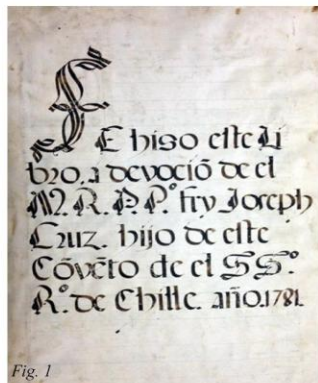 SE hiso este Li
bro. a devociõ de el
M. R. P. P.º fry Joseph
Cruz. hijo de este
Cõvẽto de el SS.º
R.º de Chille. año.1781.
Fig. 1